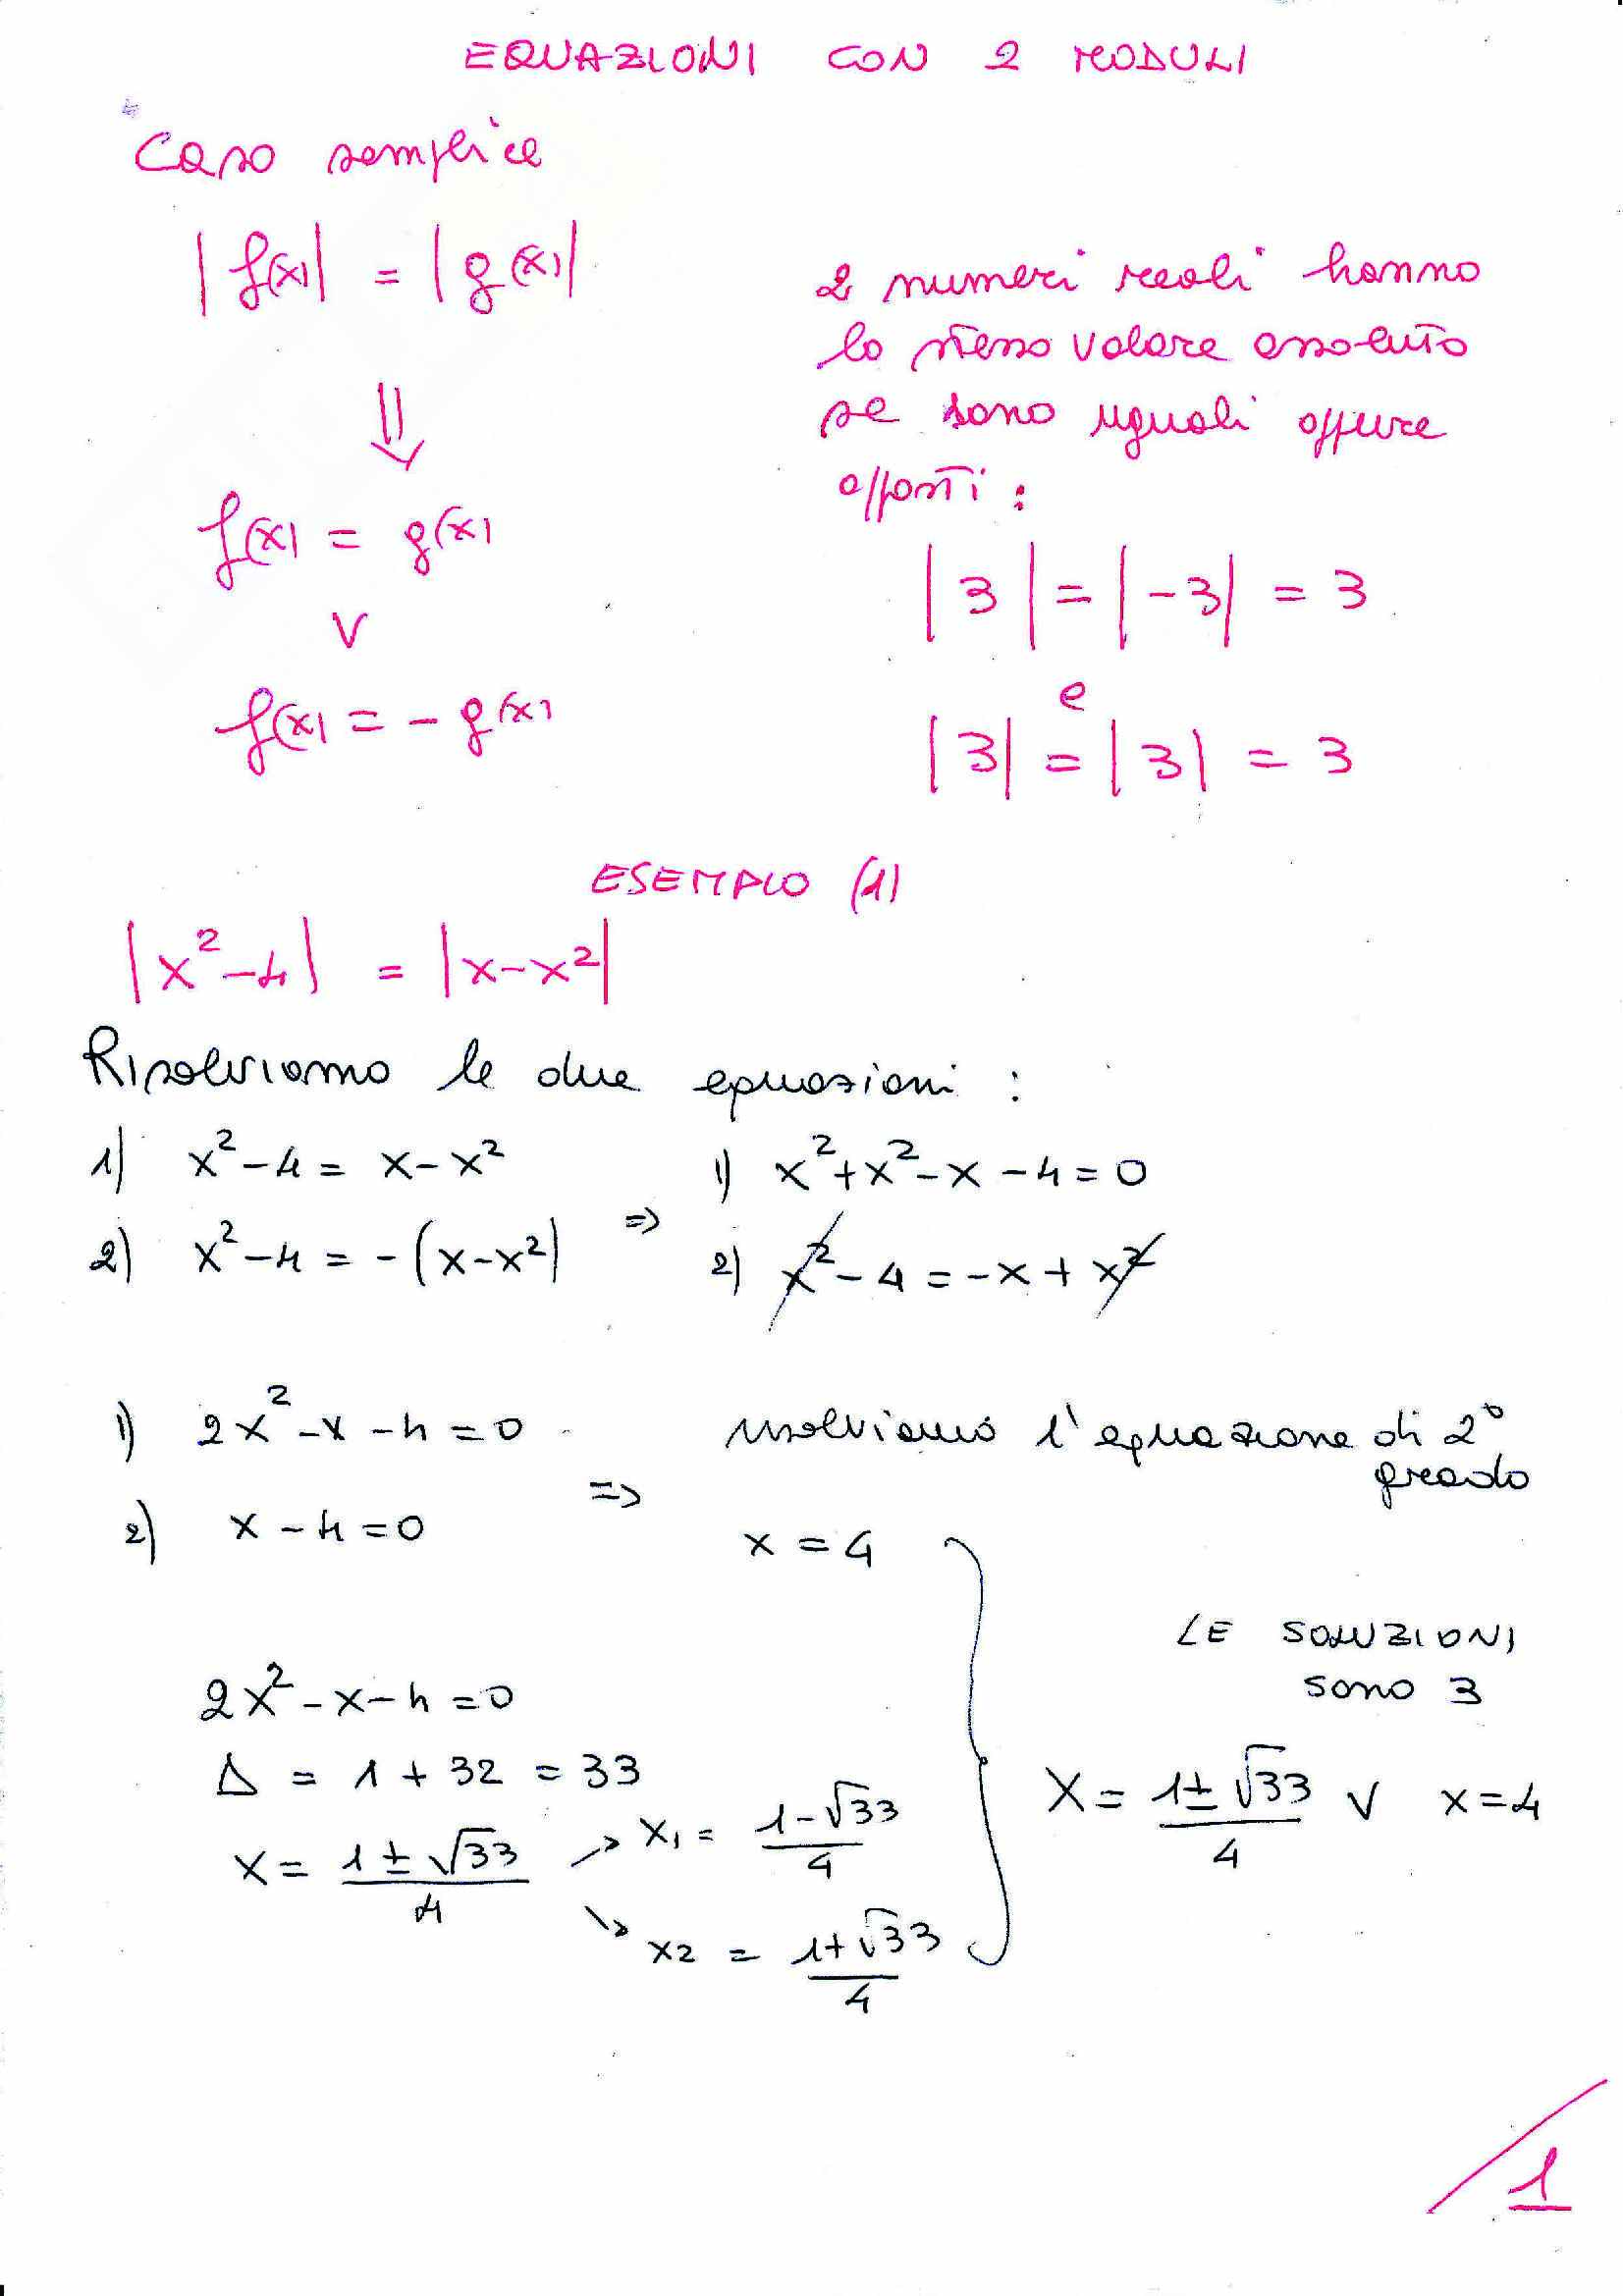 EQUAZIONI CON 2 MODULI
Caso semplice
|f(x)| = |g(x)|
⇓
f(x) = g(x)
V
f(x) = - g(x)
2 numeri reali hanno
lo stesso valore assoluto
se sono uguali oppure
opposti :
|3| = |-3| = 3
e
|3| = |3| = 3
ESEMPIO (1)
|x²-4| = |x-x²|
Risolviamo le due equazioni :
1) x²-4 = x-x² ⇒ 1) x²+x²-x-4=0
2) x²-4 = -(x-x²) 2) x²-4=-x+x²
1) 2x²-x-4=0 ⇒ risolviamo l'equazione di 2°
grado
2) x-4=0 x=4
2x²-x-4=0
Δ = 1+32 = 33
x = (1±√33)/4 → x1 = (1-√33)/4
→ x2 = (1+√33)/4
LE SOLUZIONI
sono 3
X = (1±√33)/4 V x=4
1